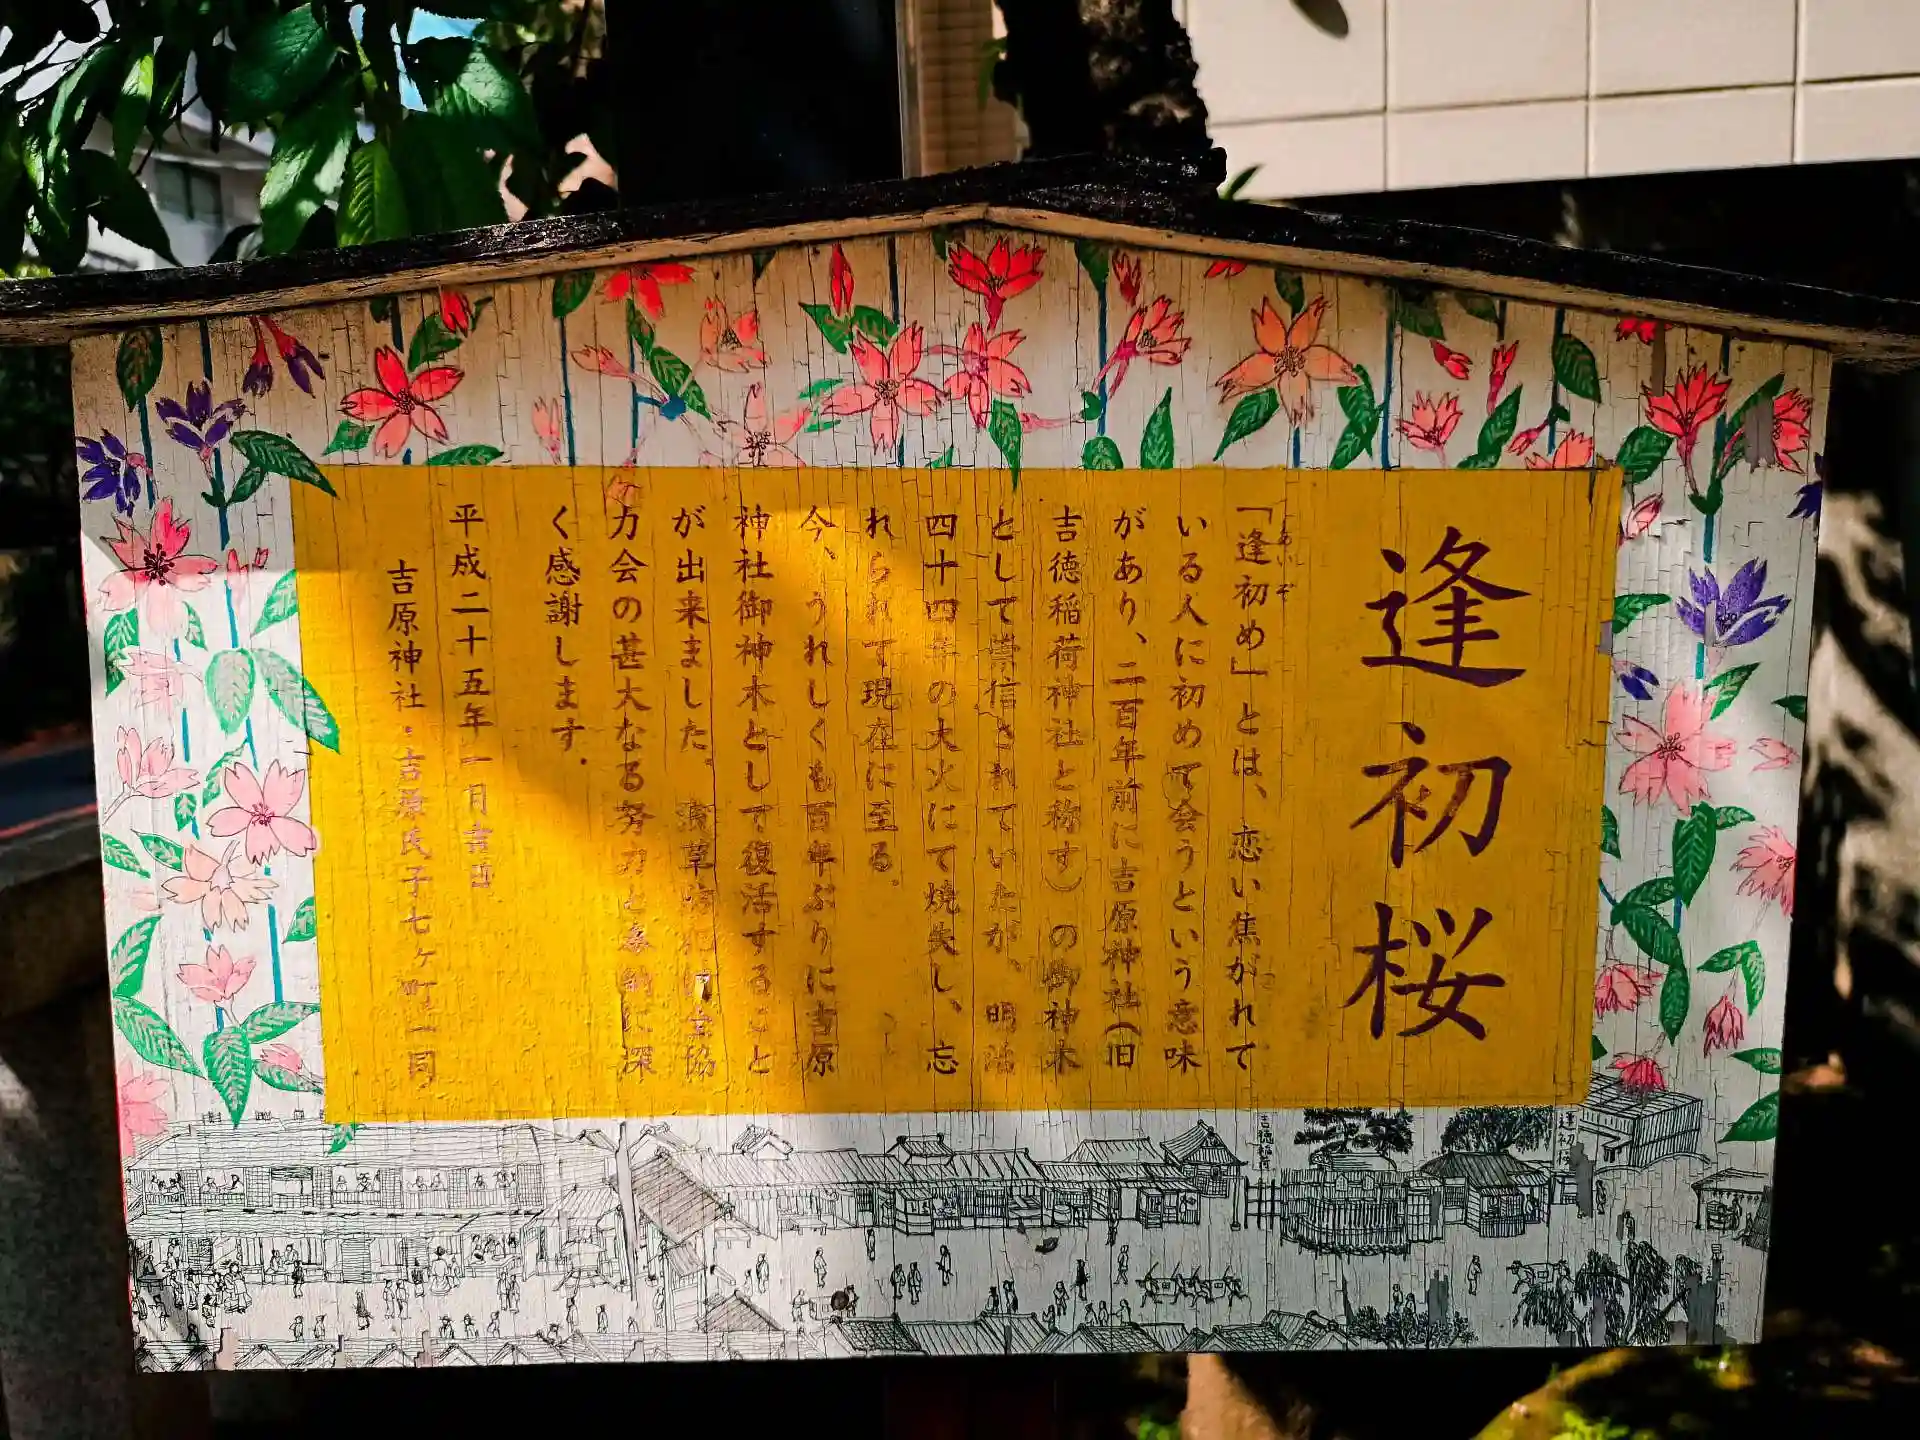 逢初桜
あいぞ
「逢初め」とは、恋い焦がれて
いる人に初めて会うという意味
があり、二百年前に吉原神社(旧
吉徳稲荷神社と称す)の御神木
として崇信されていたが、明治
四十四年の大火にて焼失し、忘
れられて現在に至る.
今、うれしくも百年ぶりに吉原
神社御神木として復活すること
が出来ました.浅草 協
力会の甚大なる努力と に深
く感謝します.
平成二十五年一月吉日
吉原神社・吉原氏子七ヶ町一同
吉徳稲荷
逢初桜